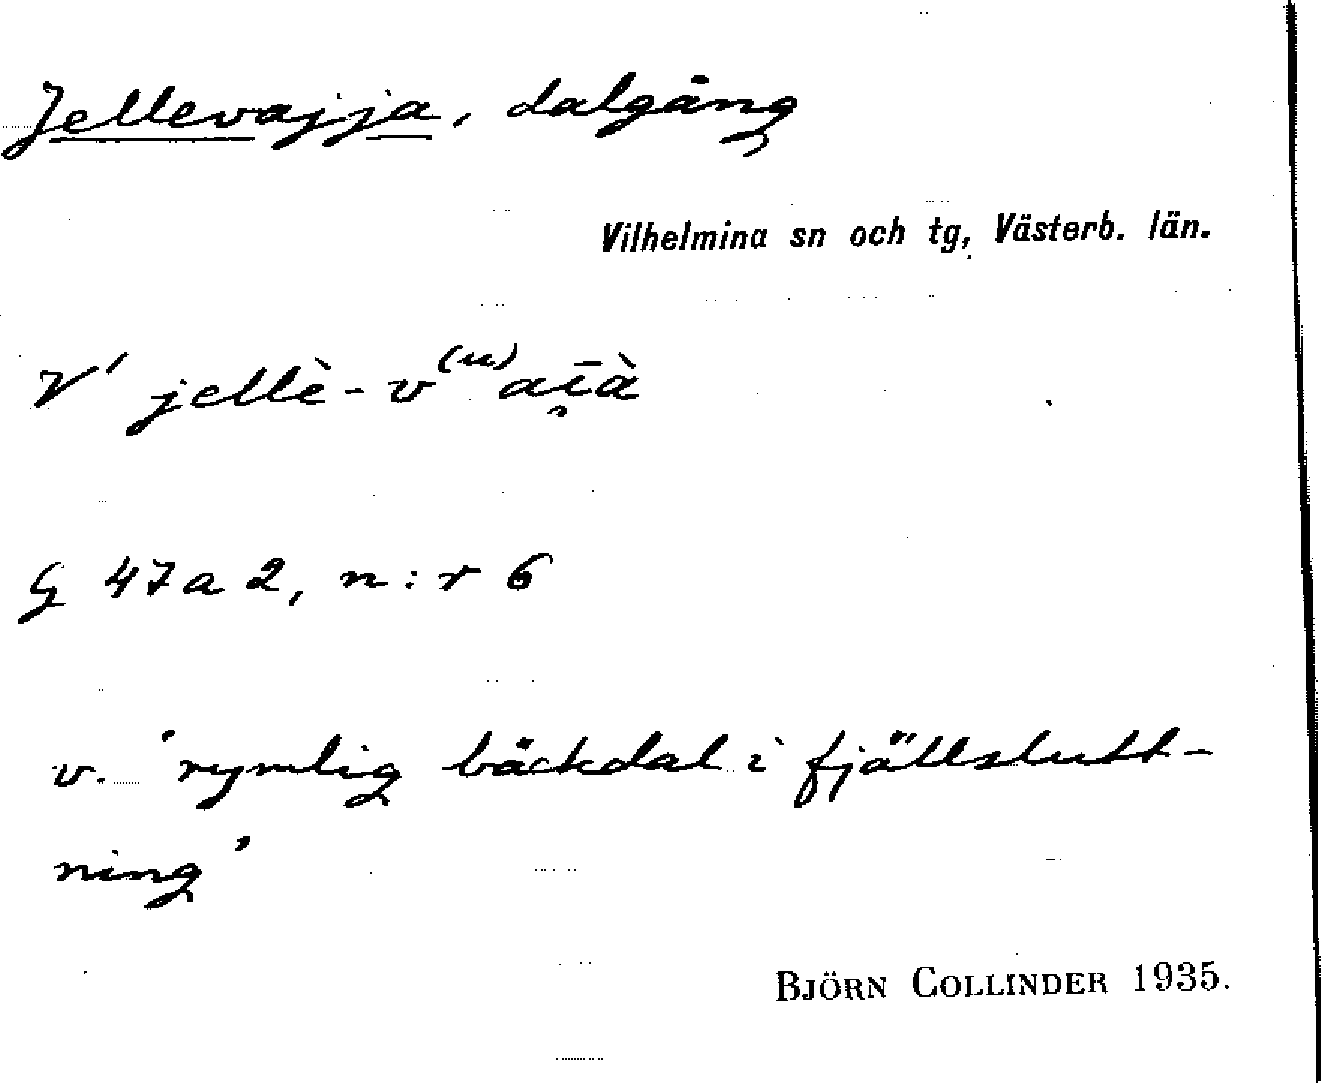 Jellevajja, dalgång
Vilhelmina sn och tg, Västerb. län.
V' jellè-v⁽ᵘ⁾aī̯à
G 47a2, n:r 6
v. 'rymlig bäckdal i fjällslutt-
ning'
BJÖRN COLLINDER 1935.